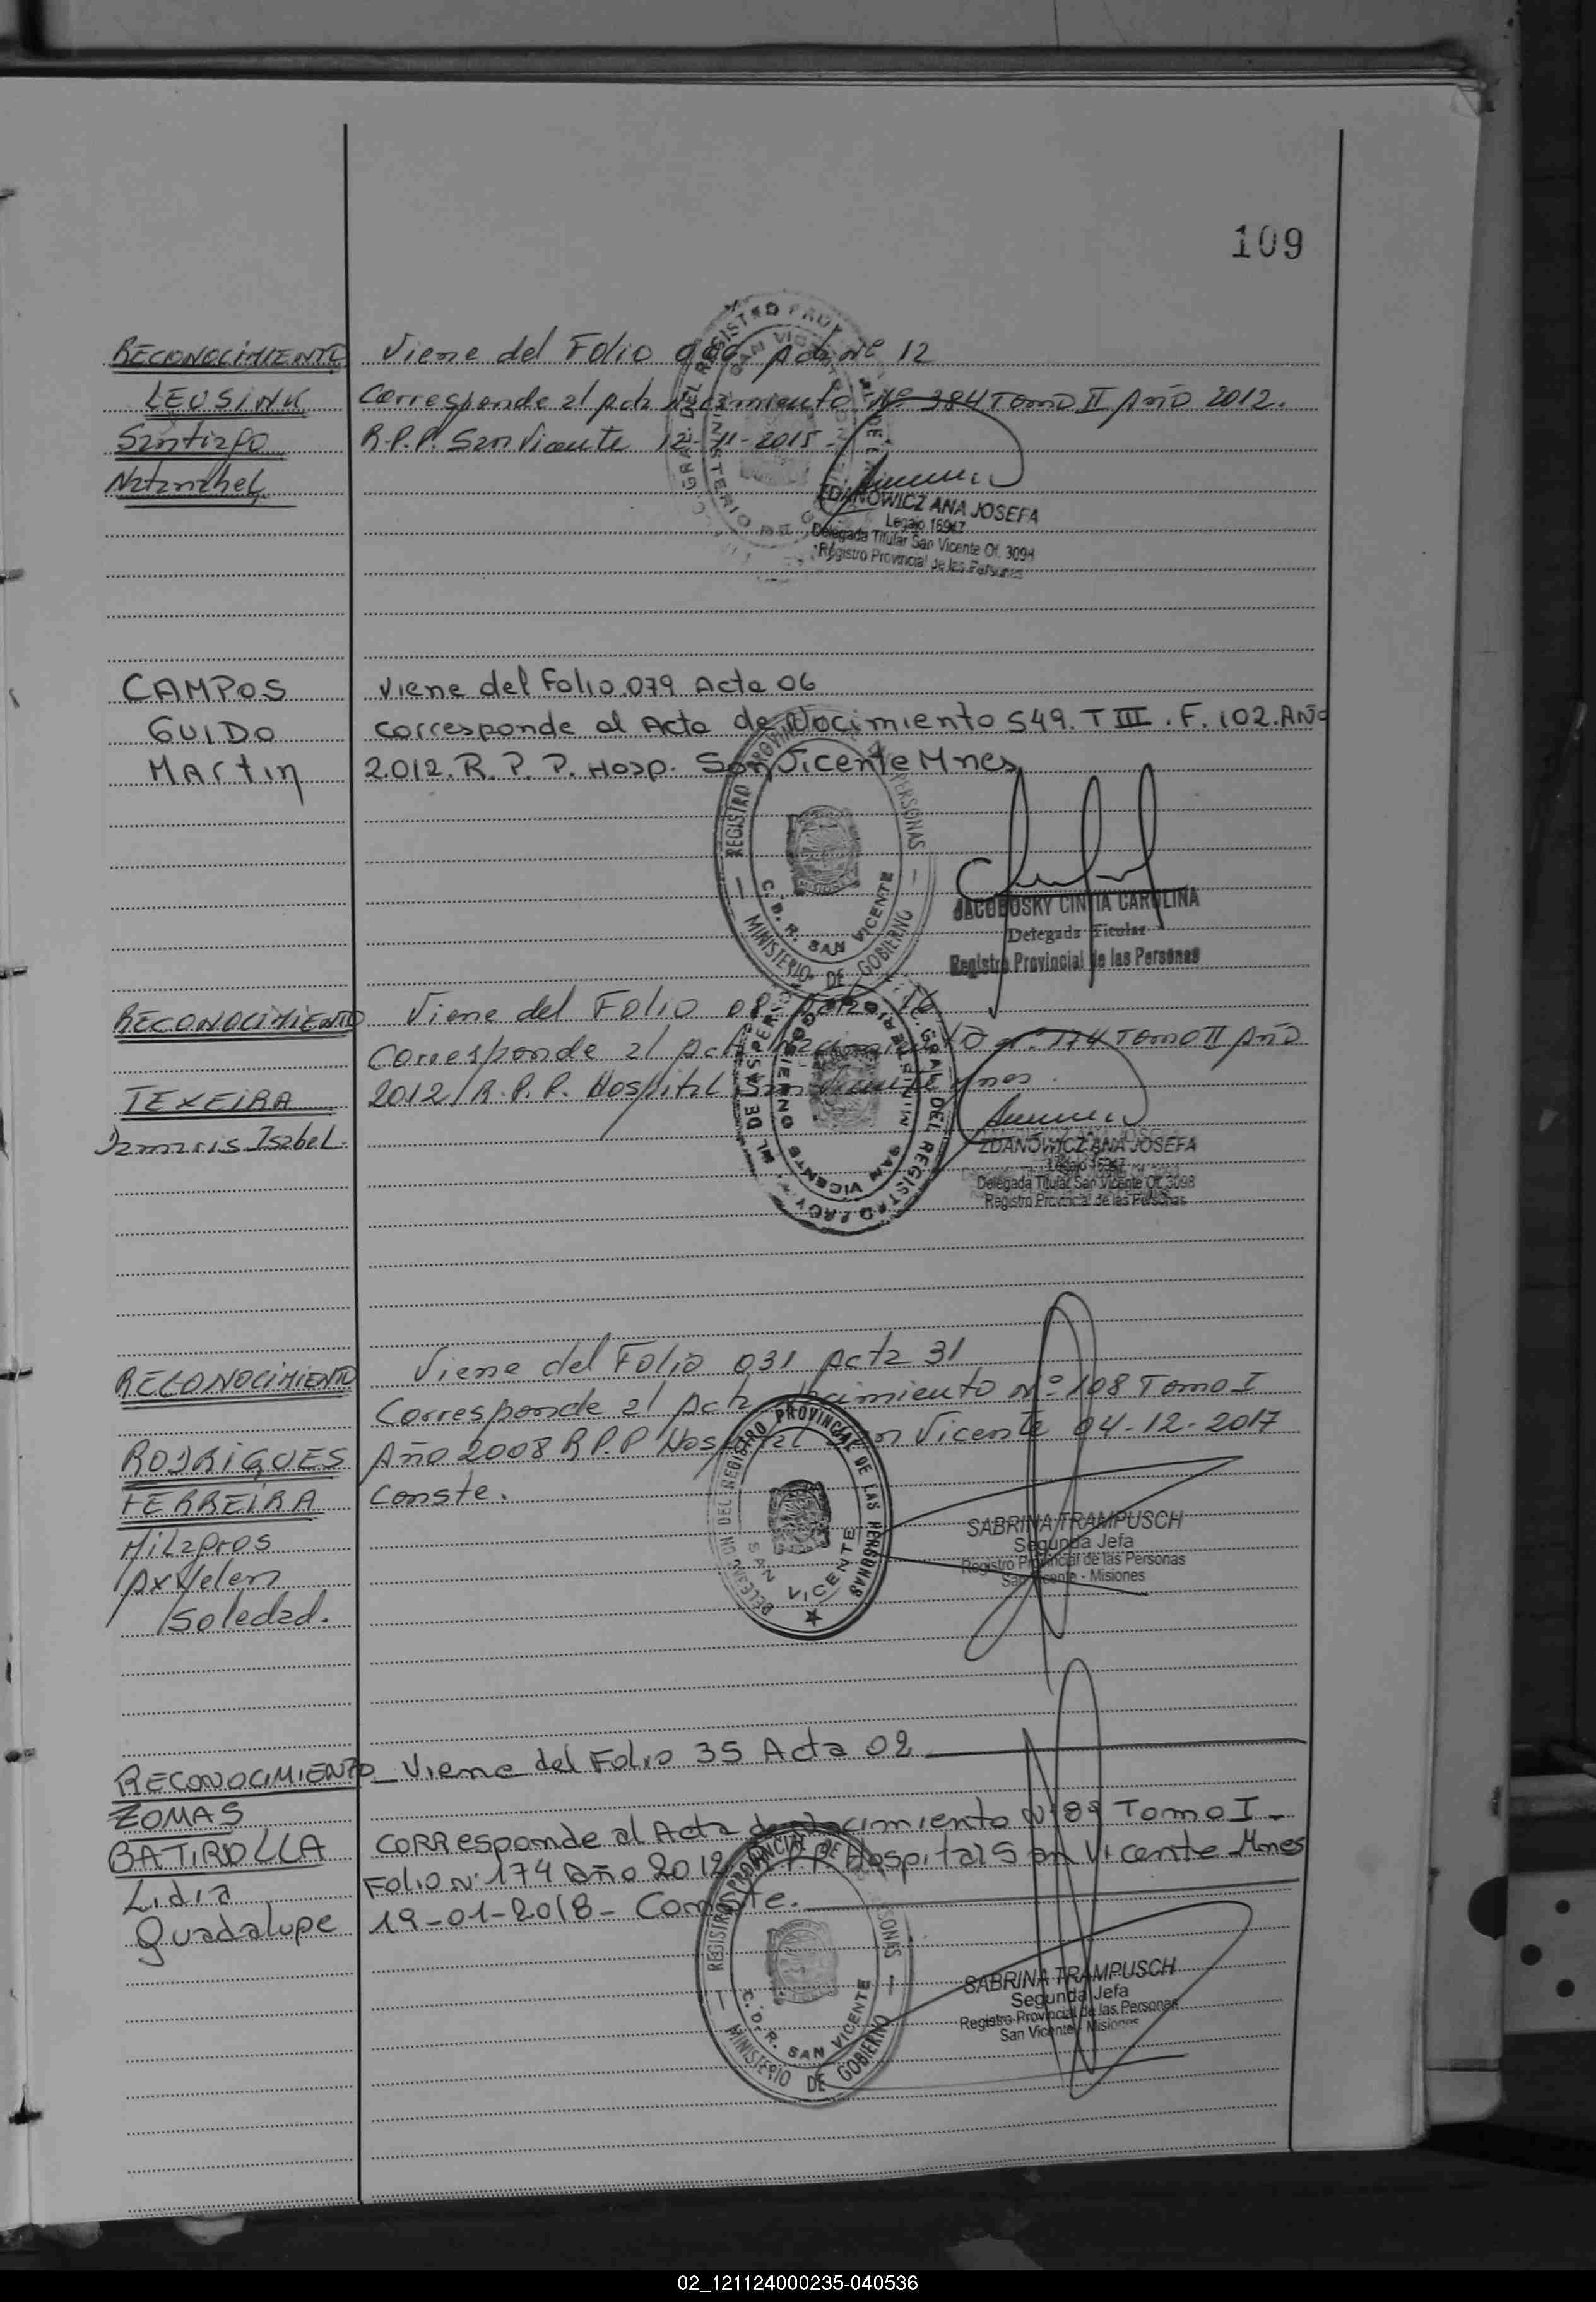 109
RECONOCIMIENTO Viene del Folio Acta Nº 12
LEUSINK Corresponde al Acta Nacimiento Nº 384 Tomo II Año 2012.
Santiago R.P.P. San Vicente 12-11-2015-
Natanahel
ZDANOWICZ ANA JOSEFA
Legajo 16947
Delegada Titular San Vicente Of. 3098
Registro Provincial de las Personas
CAMPOS Viene del Folio 079 Acta 06
GUIDO Corresponde al Acta de Nacimiento 549. T III. F. 102. Año
Martin 2012. R. P. P. Hosp. San Vicente Mnes
REGISTRO PROVINCIAL PERSONAS
C. D. R. SAN VICENTE
MINISTERIO DE GOBIERNO
JACOBOSKY CINTIA CAROLINA
Delegada Titular
Registro Provincial de las Personas
RECONOCIMIENTO Viene del Folio Acta 16
Corresponde al Acta Nacimiento nº 174 Tomo II Año
TEXEIRA 2012 R.P.P. Hospital San Vicente Mnes.
Damaris Isabel.
ZDANOWICZ ANA JOSEFA
Legajo 16947
Delegada Titular San Vicente Of. 3098
Registro Provincial de las Personas
RECONOCIMIENTO Viene del Folio 031 Acta 31
Corresponde al Acta Nacimiento Nº 108 Tomo I
RODRIGUES Año 2008 R.P.P Hospital San Vicente 04-12-2017
FERREIRA Conste.
Milagros
Axxelen
Soledad.
DELEGACION DEL REGISTRO PROVINCIAL DE LAS PERSONAS
SAN VICENTE
SABRINA TRAMPUSCH
Segunda Jefa
Registro Provincial de las Personas
San Vicente - Misiones
RECONOCIMIENTO Viene del Folio 35 Acta 02
ZOMAS
BATIROLLA Corresponde al Acta de Nacimiento Nº 89 Tomo I -
Lidia Folio Nº 174 Año 2012 R.P.P. Hospital San Vicente Mnes
Guadalupe 19-01-2018- Conste.
REGISTRO PROVINCIAL DE PERSONAS
C. D. R. SAN VICENTE
MINISTERIO DE GOBIERNO
SABRINA TRAMPUSCH
Segunda Jefa
Registro Provincial de las Personas
San Vicente - Misiones
02_121124000235-040536